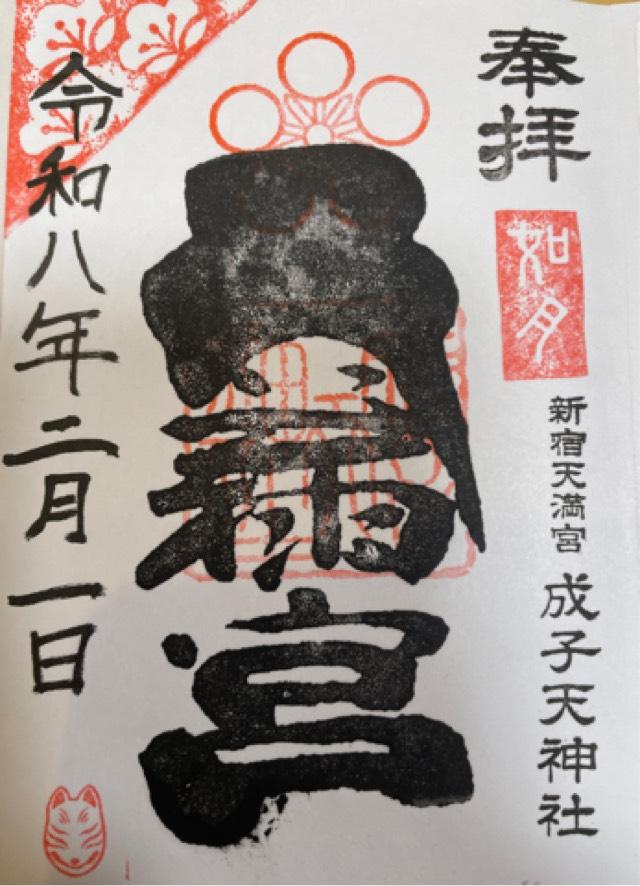 奉拝
如月
新宿天満宮 成子天神社
天満宮
令和八年二月一日